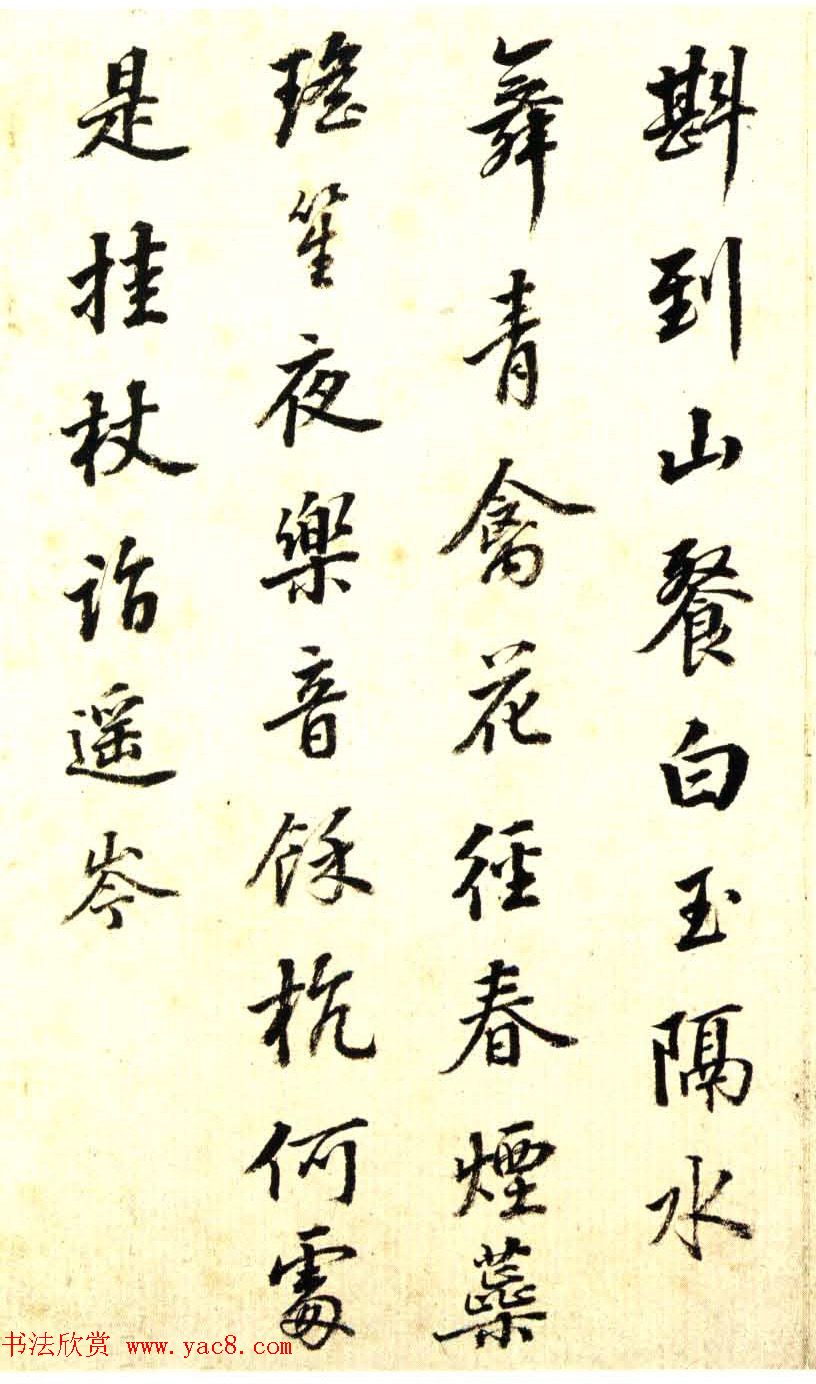 斟到山餐白玉隔水
舞青禽花徑春煙藥
瑤笙夜樂音餘杭何處
是挂杖詣遥岑
书法欣赏 www.yac8.com